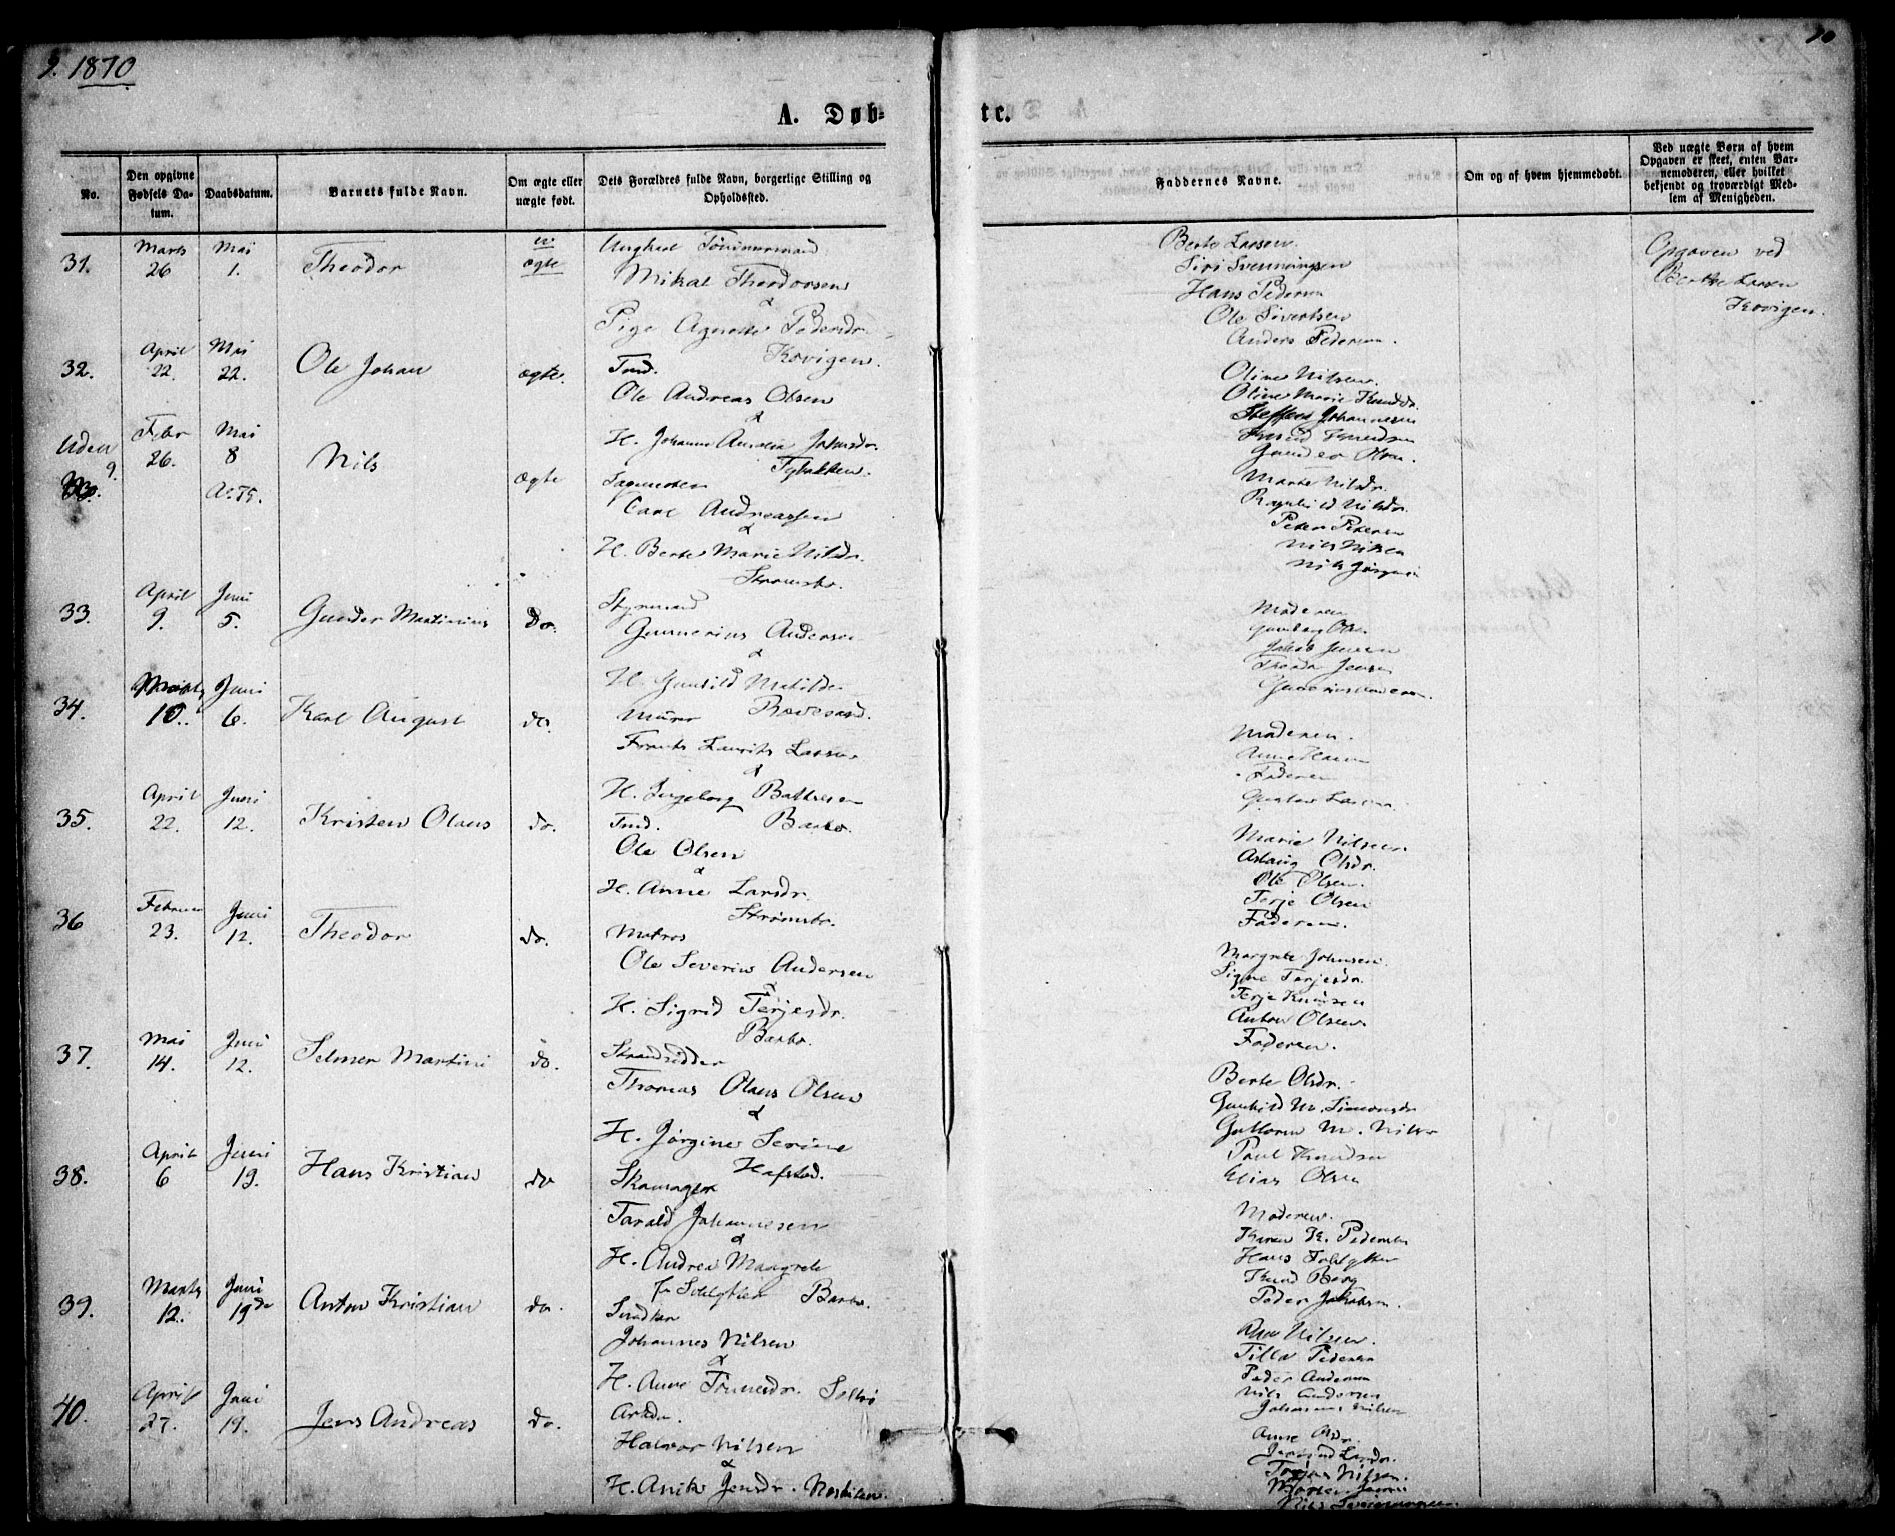 9. 1870
10
A. Døb-
te.
No.
Den opgivne Fødsels Datum.
Daabsdatum.
Barnets fulde Navn.
Om ægte eller uægte født.
Dets Forældres fulde Navn, borgerlige Stilling og Opholdssted.
Faddernes Navne.
Om og af hvem hjemmedøbt.
Ved uægte Børn af hvem Opgaven er skeet, enten Barnemoderen, eller hvilket bekjendt og troværdigt Medlem af Menigheden.
31.
Marts 26
Mai 1.
Theodor
u ægte
Ungkarl Tømmermand
Mikal Theodorsen
&
Pige Agnethe Pedersdr
Kovigen.
Berte Larsen.
Siri Svenningsen
Hans Pedersen
Ole Sivertsen
Anders Pedersen.
Opgaven ved
Berthe Larsen
Kovigen.
32.
April 22.
Mai 22.
Ole Johan
ægte.
Tmd.
Ole Andreas Olsen
&
H. Johanne Amalia Jakobsdr.
Tybakken.
Oline Nilsen.
Oline Marie Knudsdr.
Steffen Johannesen
Knud Knudsen
Gunder Olsen.
Uden No.
Febr 26.
Mai 8
Nils
ægte
Carl Andreassen
&
H. Berte Marie Nilsdr.
Strømsbo.
Marte Nilsdr.
Ragnhild Nilsdr.
Peder Pedersen
Nils Nilsen
Nils Jørgensen
33.
April 9.
Juni 5.
Gunder Martinius
do.
Styrmand
Gunnerius Andersen
&
H. Gunild Matilde
Moderen
Gunborg Olsen
Jakob Jensen
Thea Jensen
34.
Marts 10.
Juni 6.
Karl August
do.
Murer
Frants Laurits Larsen
&
H. Ingeborg
Barbo.
Moderen.
Anne Hansen
Faderen
Gustav Larsen.
35.
April 22.
Juni 12.
Kristen Olaus
do.
Tmd.
Ole Olsen
&
H. Anne Larsdr.
Strømsbo.
Marie Nilsen
Aslaug Olsdr.
Ole Olsen.
Terje Olsen
Faderen.
36
Februar 23.
Juni 12.
Theodor
do.
Matros
Ole Severin Andersen
&
H. Sigrid Terjesdr.
Barbo.
Margrete Johnsen.
Signe Terjesdr.
Terje Knudsen
Anton Olsen
Faderen.
37.
Mai 14.
Juni 12.
Selmer Martini
do.
Strandsidder
Thomas Olaus Olsen
&
H. Jørgine Serine
Hafsted.
Berte Olsdr.
Gunhild M. Simonsdr
Guttorm M. Nilsen
Paul Knudsen
Elias Olsen
38.
April 6
Juni 19.
Hans Kristian
do
Skomager
Tarald Johannesen
&
H. Andrea Maagrete
Barbo.
Moderen.
Karen K. Pedersen
Knud Berg
Peder Jakobsen.
39.
Marts 12.
Juni 19de
Anton Kristian
do.
Johannes Nilsen
&
H. Anne Tønnesdr.
Nilsen.
Tilla Pedersen
Peder Andersen
Nils Andersen
Johannes Nilsen
40.
April 27.
Juni 19.
Jens Andreas
do.
Arbdr.
Halvor Nilsen
&
H. Anike Jensdr.
Anne Olsdr.
Tønnes Nilsen.
Morten Jensen